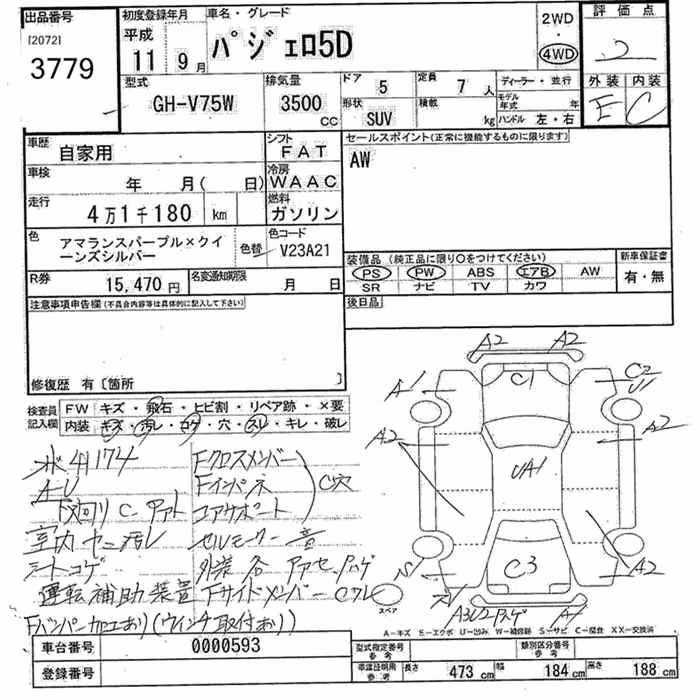 出品番号
[2072]
3779
初度登録年月
平成
11 9月
車名・グレード
パジェロ5D
2WD
4WD
評価点
2
外装 内装
E C
型式
GH-V75W
排気量
3500 CC
ドア 5
形状 SUV
定員 7 人
積載 kg
ディーラー・並行
モデル年式 年
ハンドル 左・右
車歴 自家用
シフト FAT
車検 年 月( 日)
冷房 WAAC
走行 4万1千180 km
燃料 ガソリン
色 アマランスパープル×クイーンズシルバー
色替
色コード V23A21
R券 15,470 円
名変通知期限 月 日
セールスポイント(正常に機能するものに限ります)
AW
装備品(純正品に限り〇をつけてください)
PS PW ABS エアB AW
SR ナビ TV カワ
新車保証書
有・無
後日品
注意事項申告欄(不具合内容等は具体的に記入して下さい)
修復歴 有〔箇所 〕
検査員記入欄
FW キズ・飛石・ヒビ割・リペア跡・×要
内装 キズ・汚レ・コゲ・穴・スレ・キレ・破レ
Fクロスメンバー
Fインパネ
C穴
コアサポート
室内ヤニ汚レ
シートコゲ
運転補助装置
Fサイドメンバー
Fバンパー加工あり(ウインチ取付あり)
A2 A2
A1
C1
C2
U1
A2
A2
UA1
C3
A2
スペア
A1
A-キズ E-エクボ U-凹み W-補修跡 S-サビ C-腐食 XX-交換済
車台番号 0000593
登録番号
型式指定番号 参考
類別区分番号 参考
車庫証明用 参考
長さ 473 cm
幅 184 cm
高さ 188 cm